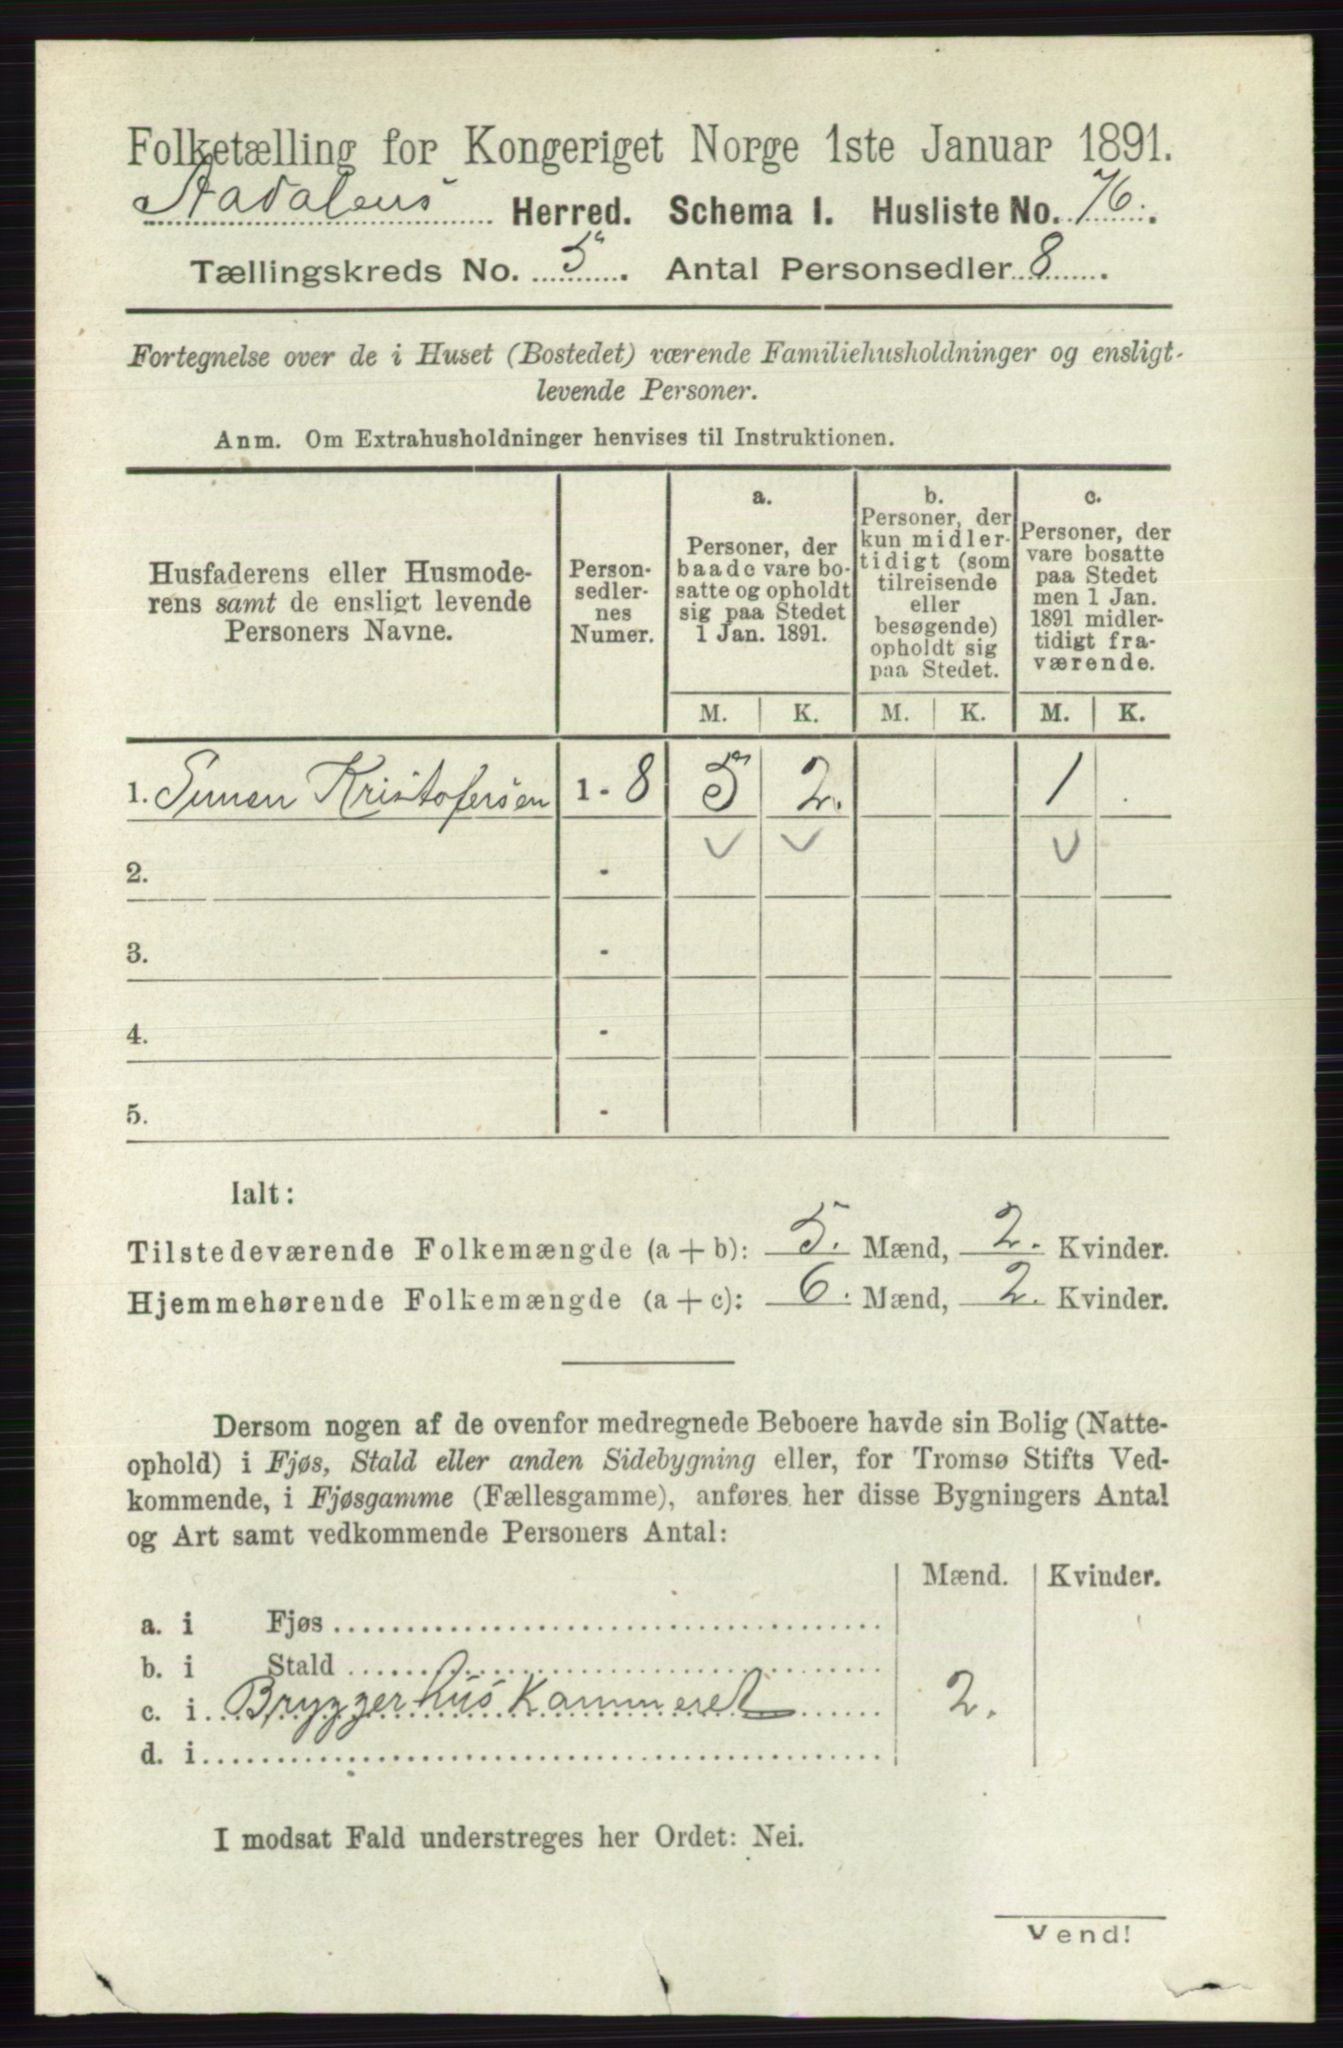 Folketælling for Kongeriget Norge 1ste Januar 1891.
Aadalens Herred. Schema I. Husliste No. 76.
Tællingskreds No. 5. Antal Personsedler 8.
Fortegnelse over de i Huset (Bostedet) værende Familiehusholdninger og ensligt-
levende Personer.
Anm. Om Extrahusholdninger henvises til Instruktionen.
Husfaderens eller Husmode-
rens samt de ensligt levende
Personers Navne.
Person-
sedler-
nes
Numer.
a.
Personer, der
baade vare bo-
satte og opholdt
sig paa Stedet
1 Jan. 1891.
b.
Personer, der
kun midler-
tidigt (som
tilreisende
eller
besøgende)
opholdt sig
paa Stedet.
c.
Personer, der
vare bosatte
paa Stedet
men 1 Jan.
1891 midler-
tidigt fra-
værende.
M. K. M. K. M. K.
1. Simen Kristofersen 1 - 8 5 2. 1 .
2. -
3. -
4. -
5. -
Ialt:
Tilstedeværende Folkemængde (a + b): 5. Mænd, 2. Kvinder.
Hjemmehørende Folkemængde (a + c): 6. Mænd, 2. Kvinder.
Dersom nogen af de ovenfor medregnede Beboere havde sin Bolig (Natte-
ophold) i Fjøs, Stald eller anden Sidebygning eller, for Tromsø Stifts Ved-
kommende, i Fjøsgamme (Fællesgamme), anføres her disse Bygningers Antal
og Art samt vedkommende Personers Antal:
Mænd. Kvinder.
a. i Fjøs
b. i Stald
c. i Bryggerhus Kammeret 2.
d. i
I modsat Fald understreges her Ordet: Nei.
Vend!